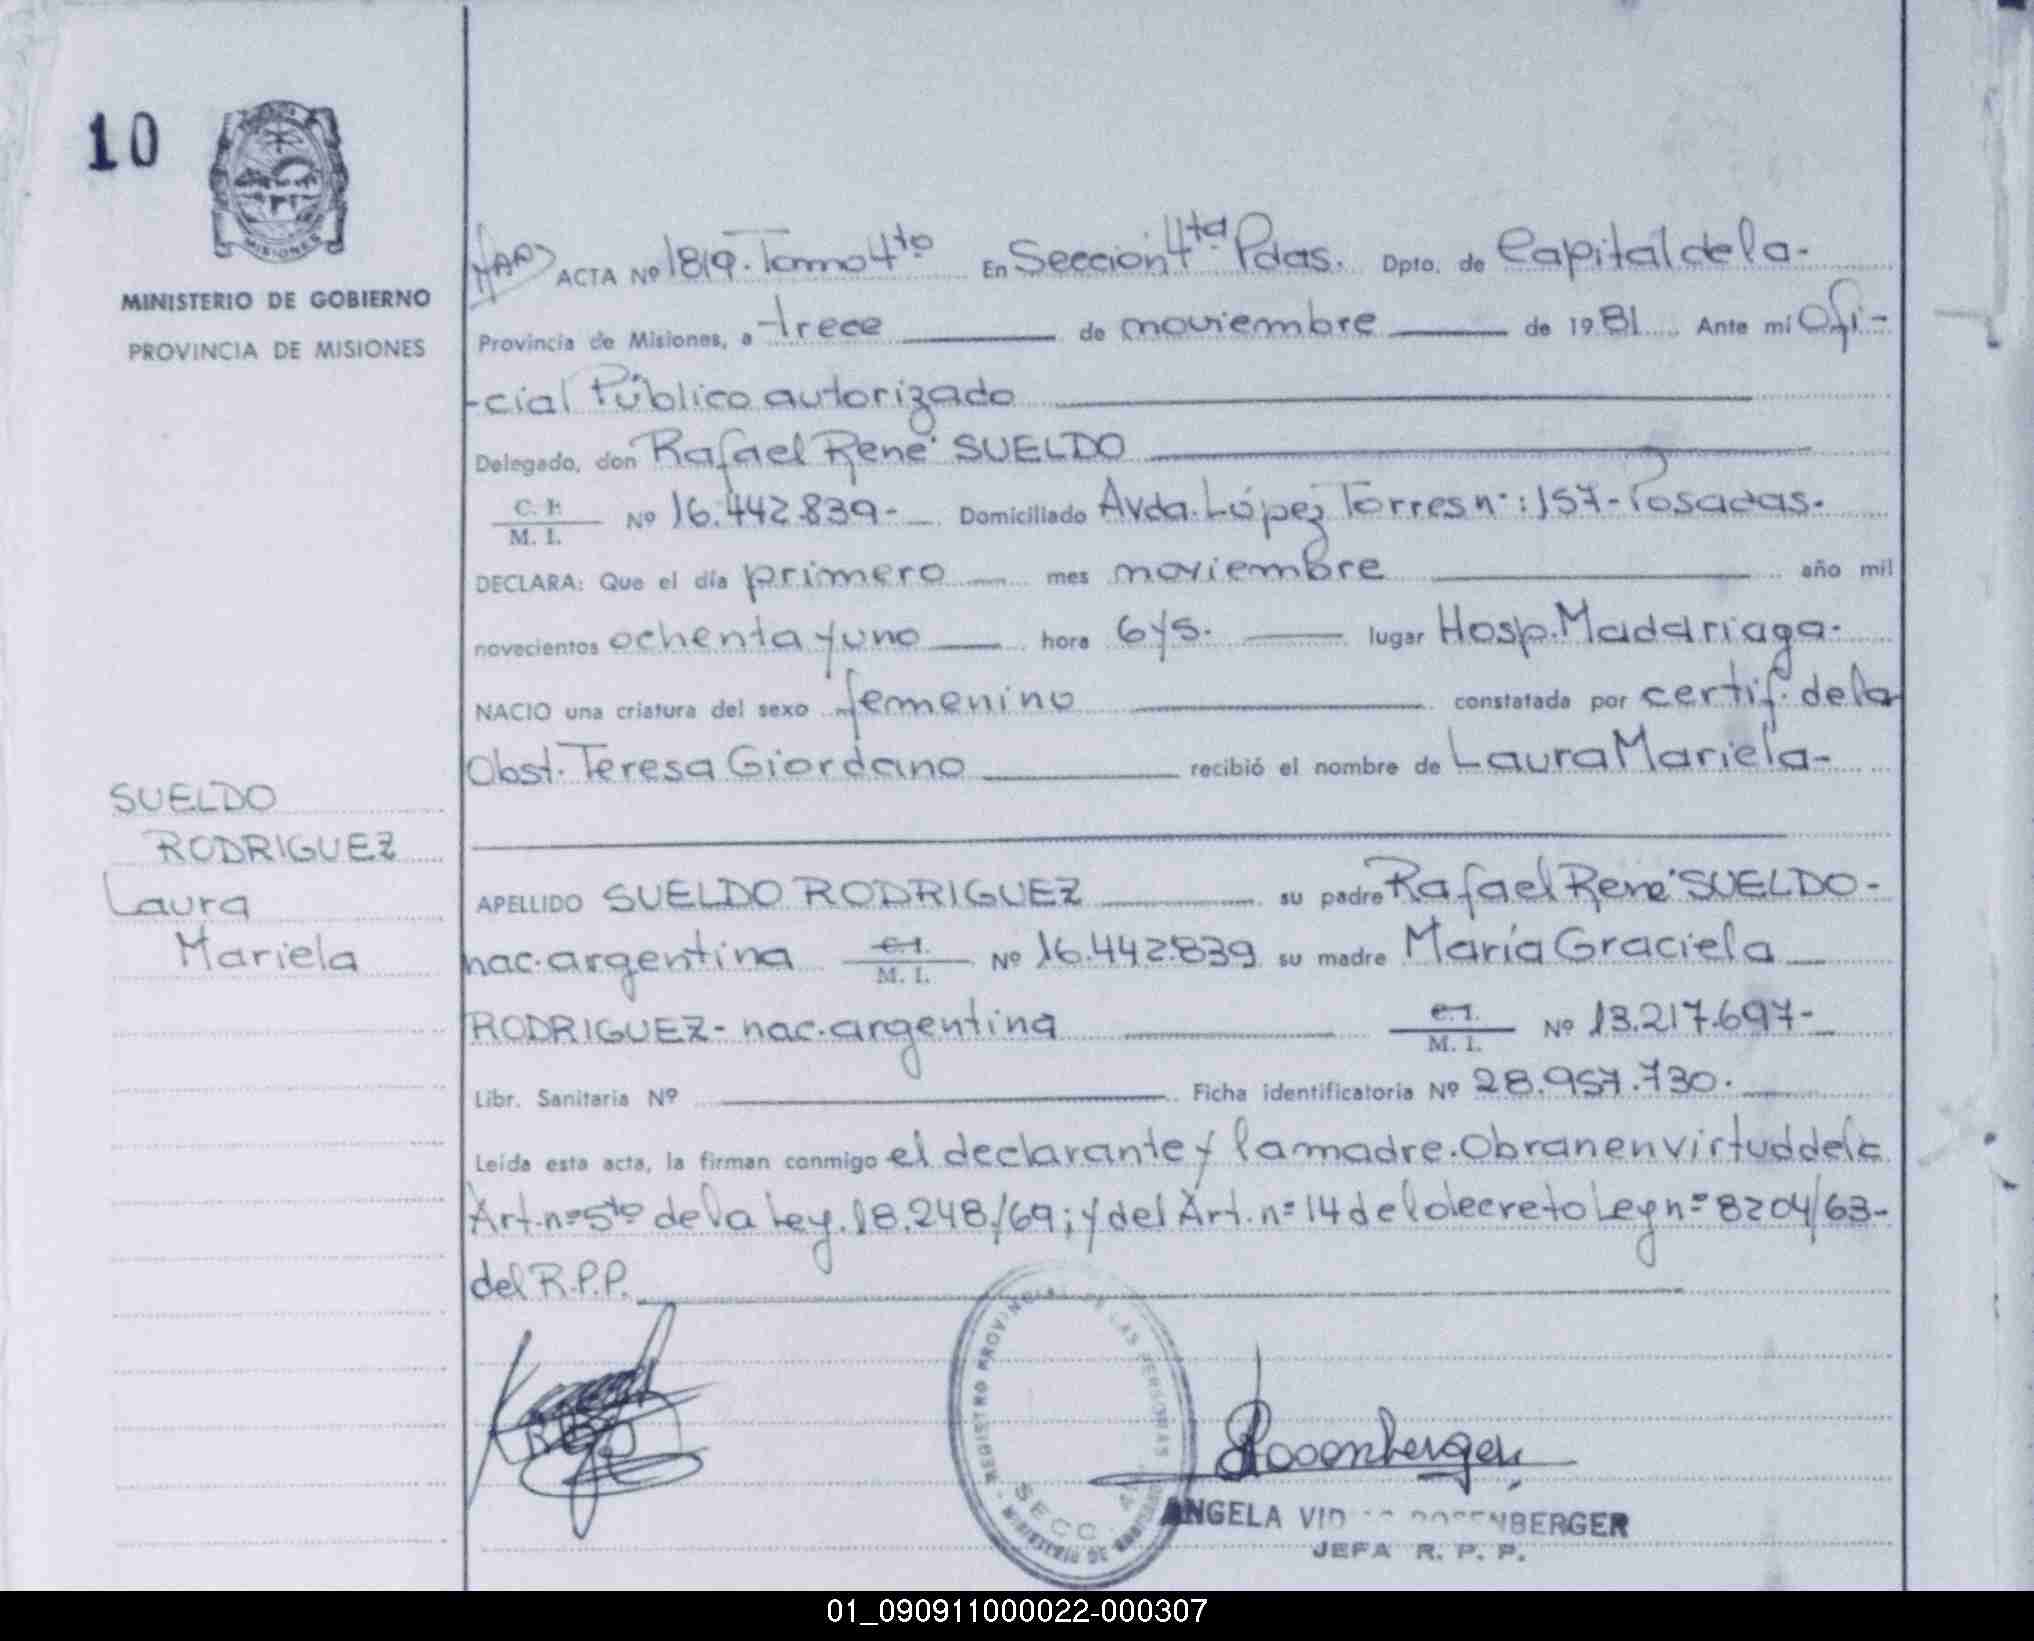 10
MISIONES
MINISTERIO DE GOBIERNO
PROVINCIA DE MISIONES
SUELDO
RODRIGUEZ
Laura
Mariela
ACTA Nº 1819. Tomo 4to En Sección 4ta Pdas. Dpto. de Capital de la-
Provincia de Misiones, a trece de noviembre de 1981 Ante mí Ofi-
-cial Público autorizado
Delegado, don Rafael René SUELDO
C. I.
M. I. Nº 16.442.839- Domiciliado Avda. López Torres nº: 157- Posadas.
DECLARA: Que el día primero mes noviembre año mil
novecientos ochenta y uno hora 6 y 5. lugar Hosp. Madariaga.
NACIO una criatura del sexo femenino constatada por certif. de la
Obst. Teresa Giordano recibió el nombre de Laura Mariela-
APELLIDO SUELDO RODRIGUEZ su padre Rafael René SUELDO-
nac. argentina C. I. M. I. Nº 16.442.839 su madre María Graciela
RODRIGUEZ- nac. argentina C. I. M. I. Nº 13.217.697-
Libr. Sanitaria Nº Ficha identificatoria Nº 28.957.730.
Leída esta acta, la firman conmigo el declarante y la madre. Obran en virtud del
Art. nº 5to de la Ley. 18.248/69; y del Art. nº 14 del decreto Ley nº 8204/63-
del R.P.P.
REGISTRO PROVINCIAL DE LAS PERSONAS
SECC. 4
MINISTERIO DE
Rosenberger
ANGELA ROSENBERGER
JEFA R. P. P.
01_090911000022-000307